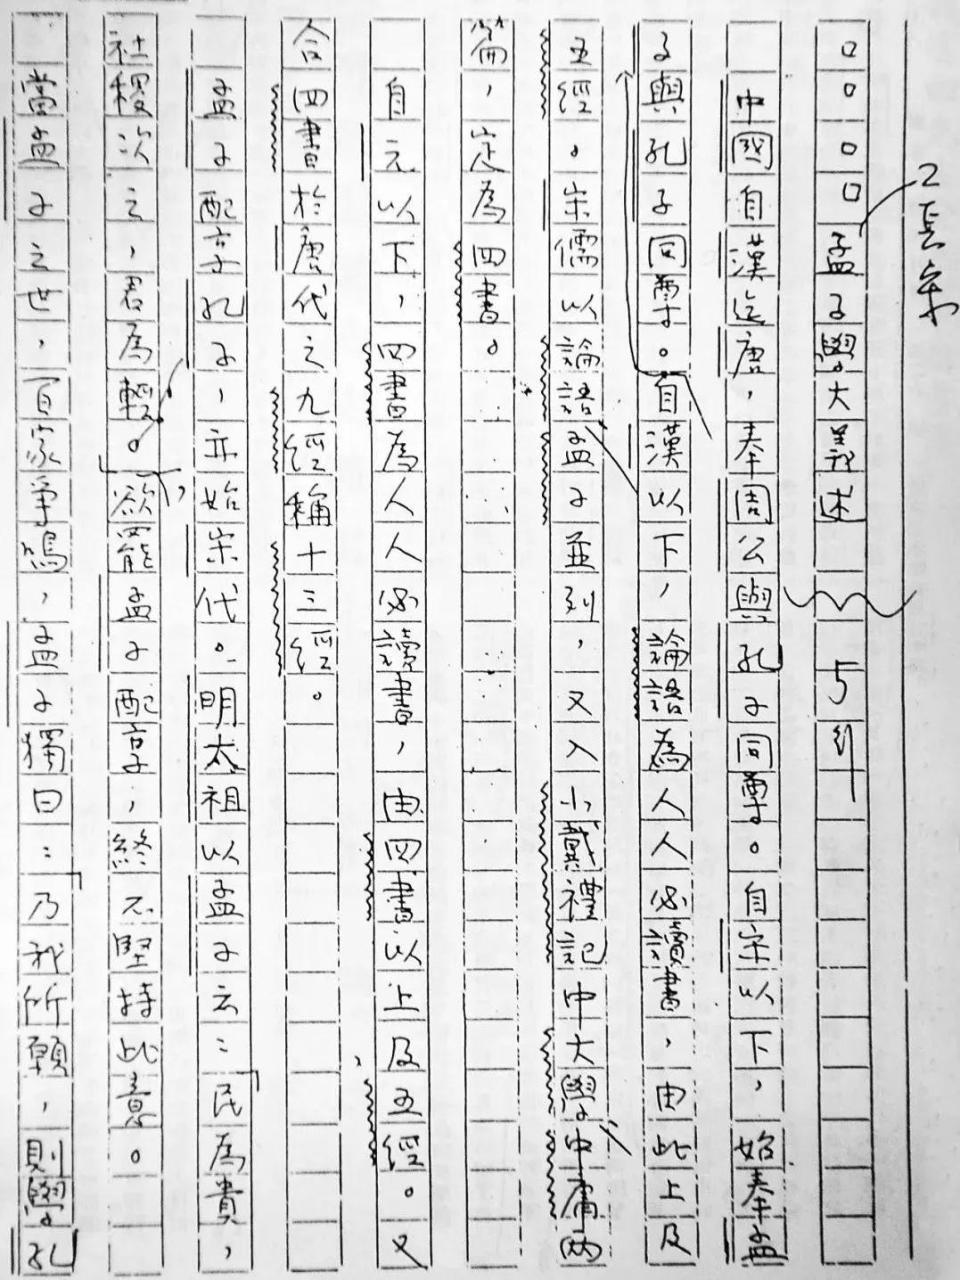 □□□□孟子學大義述 5行
中國自漢迄唐,奉周公與孔子同尊。自宋以下,始奉孟
子與孔子同尊。自漢以下,論語為人人必讀書,由此上及
五經。宋儒以論語孟子並列,又入小戴禮記中大學中庸兩
篇,定為四書。
自元以下,四書為人人必讀書,由四書以上及五經。又
合四書於唐代之九經稱十三經。
孟子配享孔子,亦始宋代。明太祖以孟子云:「民為貴,
社稷次之,君為輕。」欲罷孟子配享,終不堅持此意。
當孟子之世,百家爭鳴,孟子獨曰:「乃我所願,則學孔